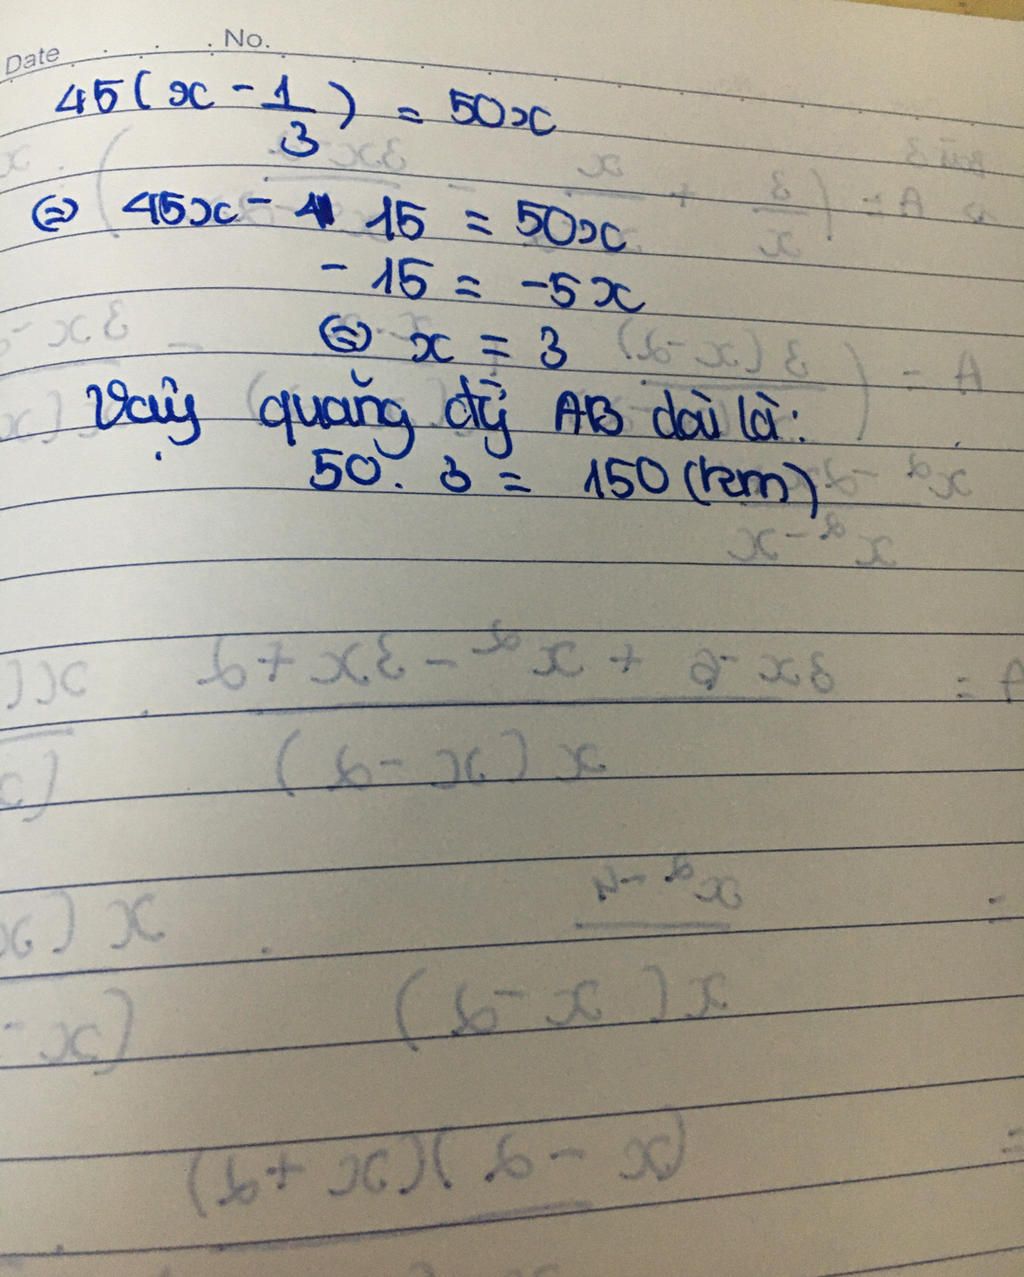 Date . . . No.
45(x - 1/3) = 50x
⇔ 45x - 15 = 50x
- 15 = -5x
⇔ x = 3
Vậy quãng đg AB dài là:
50. 3 = 150 (km)